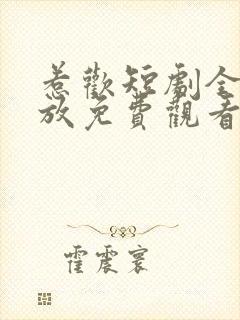 惹歡短劇全
放免費觀看
霍震寰